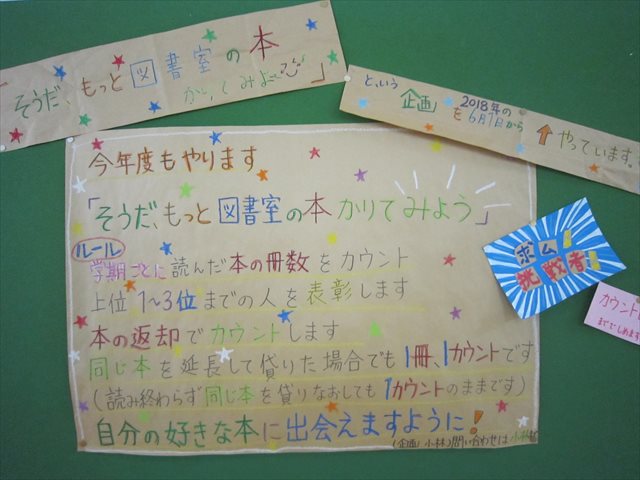 「そうだ、もっと図書室の本
かりてみよう」
という
企画を
2018年の
6月1日から
やっています。
今年度もやります
「そうだ、もっと図書室の本かりてみよう」
ルール
学期ごとに読んだ本の冊数をカウント
上位1~3位までの人を表彰します
本の返却でカウントします
同じ本を延長して貸りた場合でも1冊、1カウントです
(読み終わらず同じ本を貸りなおしても1カウントのままです)
自分の好きな本に出会えますように!
(企画 小林)問い合わせは小林
求ム!
挑戦者!
カウント
まで